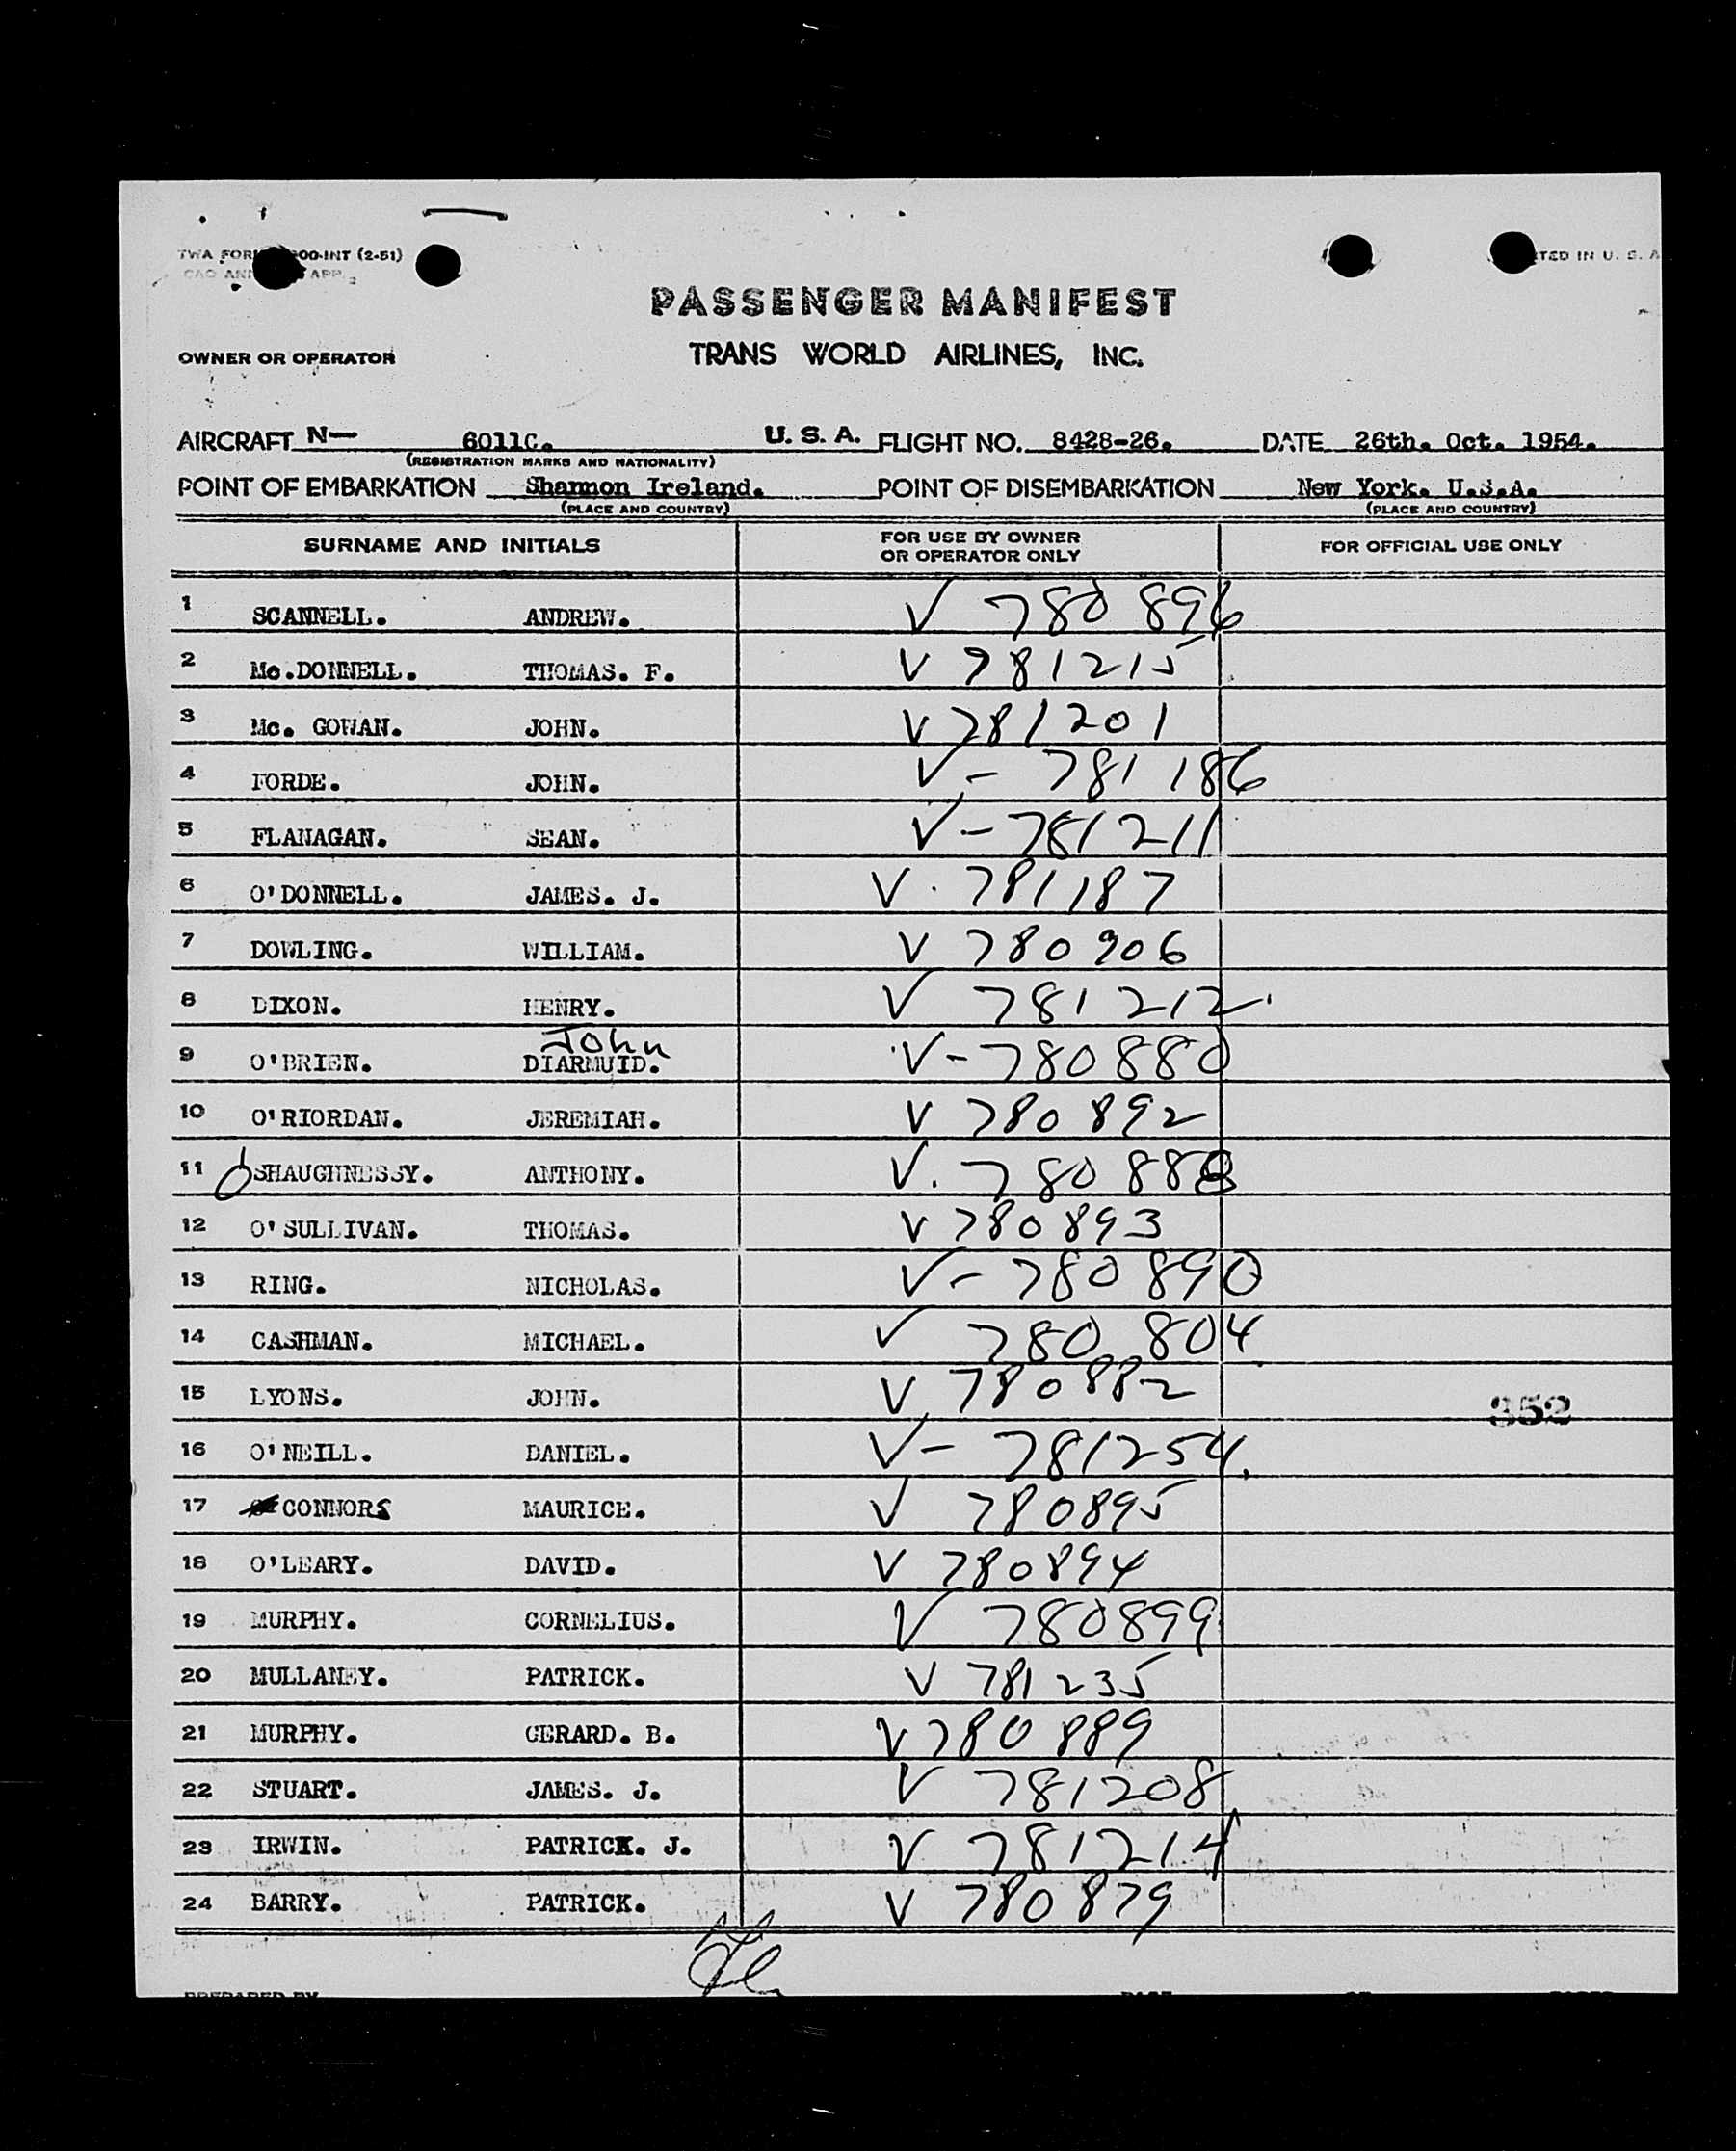 TWA FORM 00-INT (2-51)
TED IN U. S. A
PASSENGER MANIFEST
OWNER OR OPERATOR TRANS WORLD AIRLINES, INC.
AIRCRAFT N— 6011C. U. S. A. FLIGHT NO. 8428-26. DATE 26th. Oct. 1954.
(REGISTRATION MARKS AND NATIONALITY)
POINT OF EMBARKATION Shannon Ireland. POINT OF DISEMBARKATION New York. U.S.A.
(PLACE AND COUNTRY) (PLACE AND COUNTRY)
SURNAME AND INITIALS FOR USE BY OWNER OR OPERATOR ONLY FOR OFFICIAL USE ONLY
1 SCANNELL. ANDREW. V 780 896
2 Mc.DONNELL. THOMAS. F. V 781215
3 Mc. GOWAN. JOHN. V 781201
4 FORDE. JOHN. V - 781 186
5 FLANAGAN. SEAN. V - 781211
6 O'DONNELL. JAMES. J. V. 781187
7 DOWLING. WILLIAM. V 780906
8 DIXON. HENRY. V 781 212.
John
9 O'BRIEN. DIARMUID. V - 780880
10 O'RIORDAN. JEREMIAH. V 780892
11 O'SHAUGHNESSY. ANTHONY. V. 780 888
12 O'SULLIVAN. THOMAS. V 780893
13 RING. NICHOLAS. V - 780 890
14 CASHMAN. MICHAEL. V 780 804
15 LYONS. JOHN. V 780882
352
16 O'NEILL. DANIEL. V - 781254.
17 CONNORS MAURICE. V 780895
18 O'LEARY. DAVID. V 780894
19 MURPHY. CORNELIUS. V 780899
20 MULLANEY. PATRICK. V 781235
21 MURPHY. GERARD. B. V 780 889
22 STUART. JAMES. J. V 781208
23 IRWIN. PATRICK. J. V 781214
24 BARRY. PATRICK. V 780 879
PREPARED BY